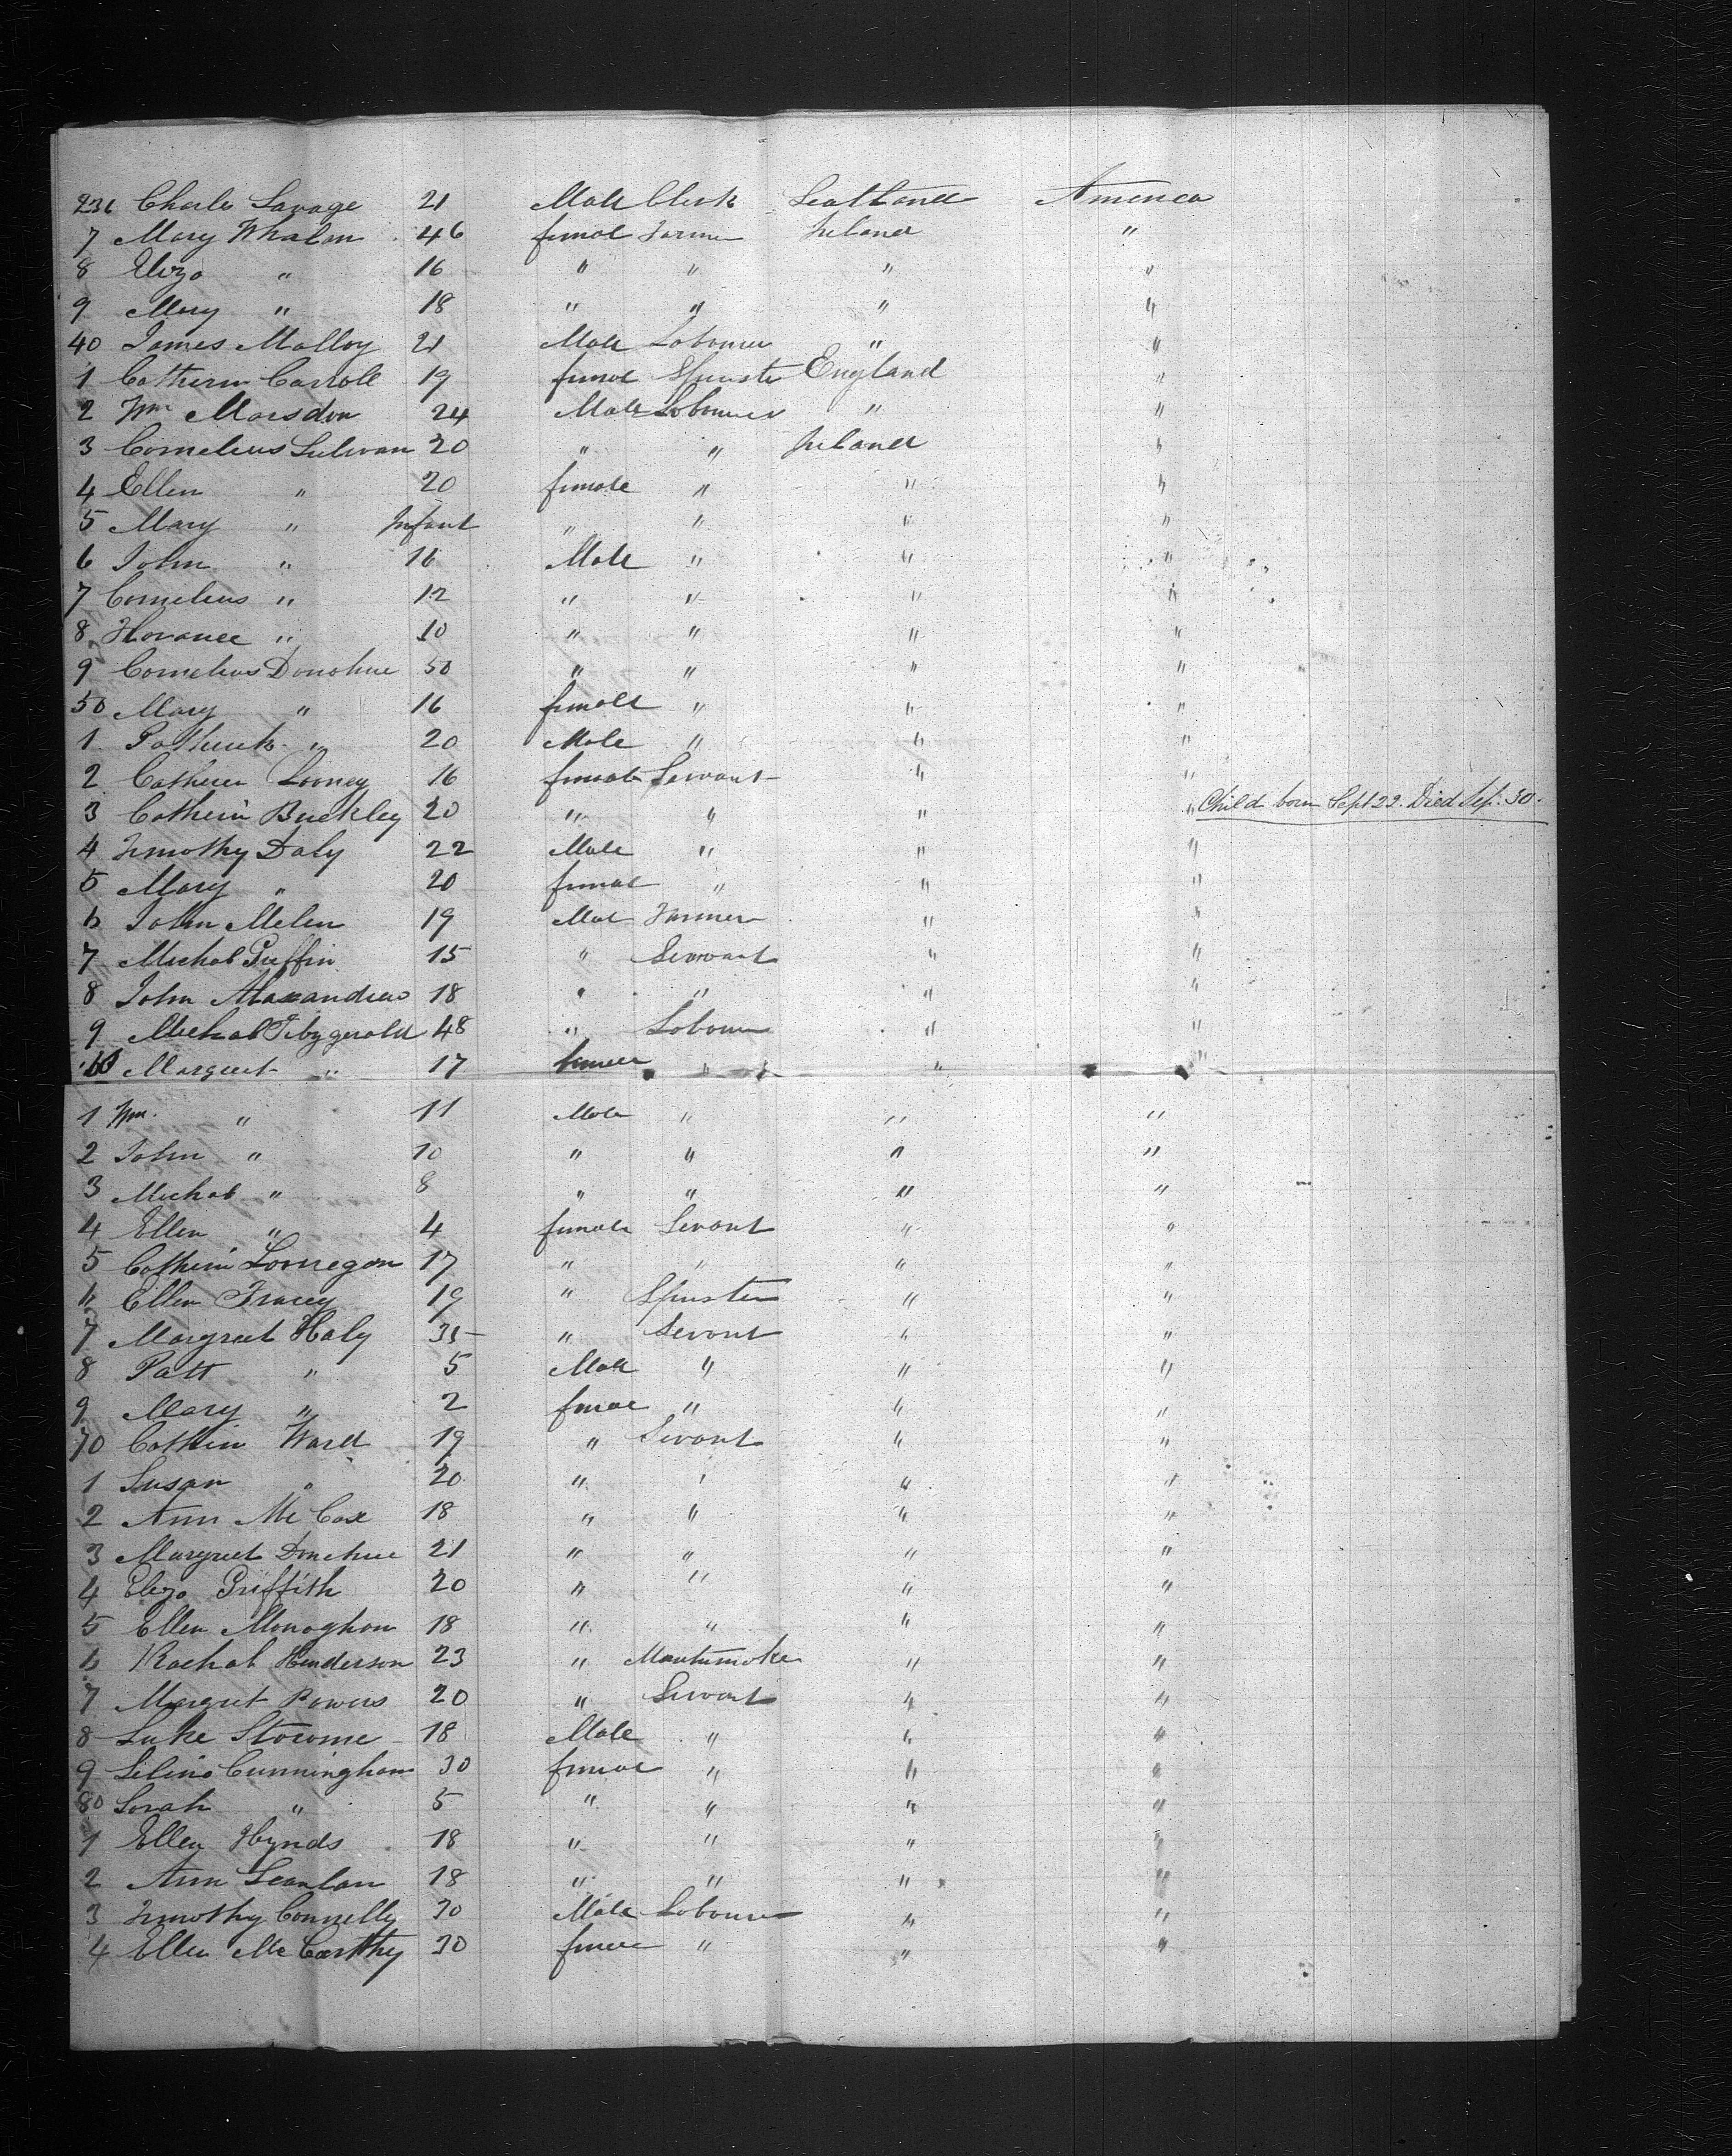 236 Charles Savage 21 Male Clerk Scotland America
7 Mary Whalen 46 female Farmer Ireland "
8 Eliza " 16 " " " "
9 Mary " 18 " " " "
40 James Malloy 21 Male Labourer " "
1 Catherin Carroll 19 female Spinster England "
2 Wm Marsdon 24 Male Labourer " "
3 Cornelius Sulivan 20 " " Ireland "
4 Ellen " 20 female " " "
5 Mary " Infant " " " "
6 John " 16 Male " " "
7 Cornelius " 12 " " " "
8 Florance " 10 " " " "
9 Cornelius Donohue 50 " " " "
50 Mary " 16 female " " "
1 Patherick " 20 Male " " "
2 Catherin Looney 16 female Servant " "
3 Catherin Buckley 20 " " " " Child born Sept 22. Died Sep. 30.
4 Timothy Daly 22 Male " " "
5 Mary " 20 female " " "
6 John Melen 19 Male Farmer " "
7 Michal Griffin 15 " Servant " "
8 John Alaxandrew 18 " " " "
9 Michal Fitzgerald 48 " Labourer " "
60 Margreet " 17 female " " "
1 Wm. " 11 Male " " "
2 John " 10 " " " "
3 Michal " 8 " " " "
4 Ellen " 4 female Servant " "
5 Catherin Lonnegan 17 " " " "
6 Ellen Tracey 19 " Spinster " "
7 Margreet Haly 35 " Servant " "
8 Patt " 5 Male " " "
9 Mary " 2 female " " "
70 Catherin Ward 19 " Servant " "
1 Susan " 20 " " " "
2 Ann Mc Coxe 18 " " " "
3 Margreet Donehue 21 " " " "
4 Eliza Griffith 20 " " " "
5 Ellen Monaghan 18 " " " "
6 Rachal Henderson 23 " Mantumaker " "
7 Margret Powers 20 " Servant " "
8 Luke 18 Male " " "
9 Selina Cunningham 30 female " " "
80 Sarah " 5 " " " "
1 Ellen Hynds 18 " " " "
2 Ann Scanlan 18 " " " "
3 Timothy Connelly 30 Male Labourer " "
4 Ellen Mc Carthy 30 female " " "